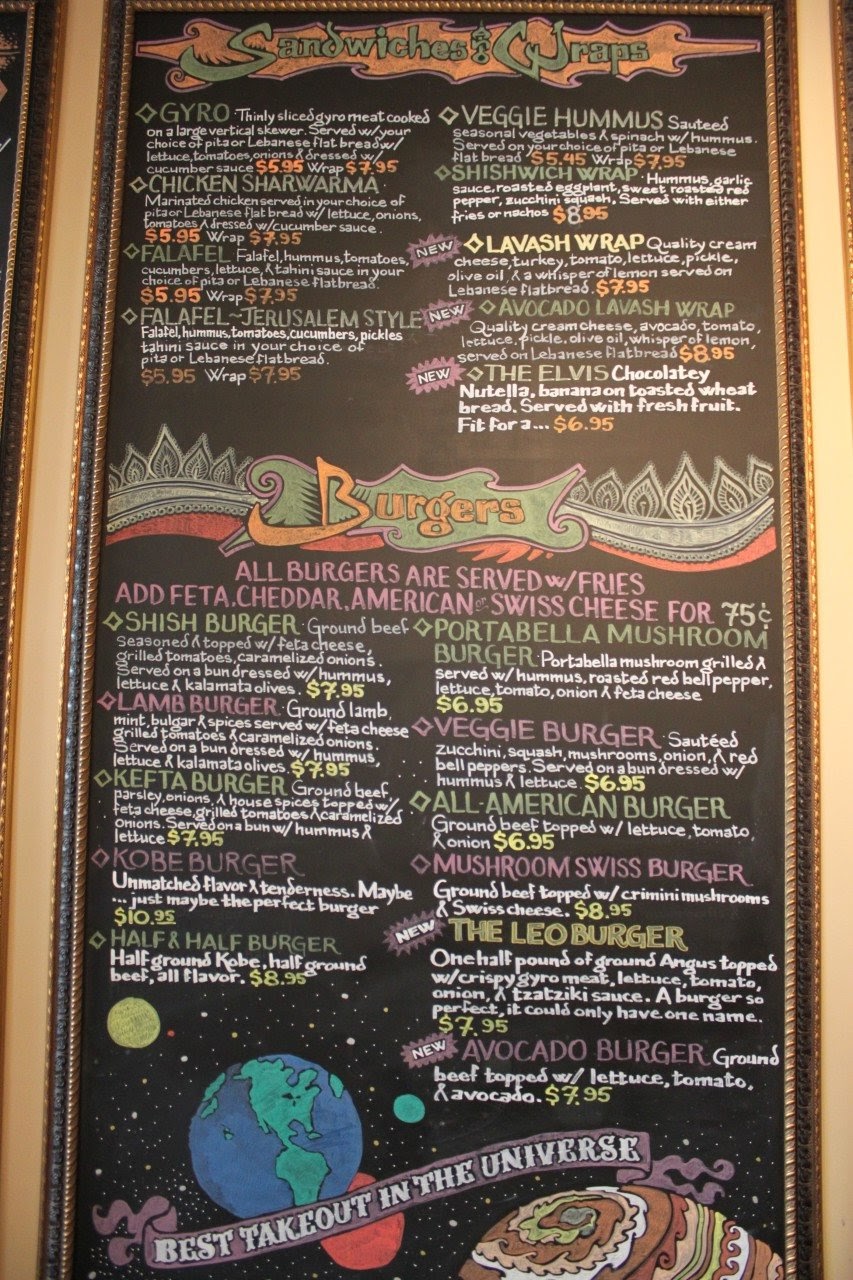 Sandwiches and Wraps
GYRO Thinly sliced gyro meat cooked
on a large vertical skewer. Served w/your
choice of pita or Lebanese flat bread w/
lettuce, tomatoes, onions & dressed w/
cucumber sauce $5.95 Wrap $7.95
CHICKEN SHARWARMA
Marinated chicken served in your choice of
pita or Lebanese flat bread w/ lettuce, onions,
tomatoes & dressed w/cucumber sauce.
$5.95 Wrap $7.95
FALAFEL Falafel, hummus, tomatoes,
cucumbers, lettuce, & tahini sauce in your
choice of pita or Lebanese flatbread.
$5.95 Wrap $7.95
FALAFEL~JERUSALEM STYLE
Falafel, hummus, tomatoes, cucumbers, pickles
tahini sauce in your choice of
pita or Lebanese flatbread.
$5.95 Wrap $7.95
VEGGIE HUMMUS Sauteed
seasonal vegetables & spinach w/ hummus.
Served on your choice of pita or Lebanese
flat bread $5.45 Wrap $7.95
SHISHWICH WRAP Hummus, garlic
sauce, roasted eggplant, sweet roasted red
pepper, zucchini squash. Served with either
fries or nachos $8.95
NEW LAVASH WRAP Quality cream
cheese, turkey, tomato, lettuce, pickle,
olive oil, & a whisper of lemon served on
Lebanese flatbread. $7.95
NEW AVOCADO LAVASH WRAP
Quality cream cheese, avocado, tomato,
lettuce, pickle, olive oil, whisper of lemon,
served on Lebanese flatbread $8.95
NEW THE ELVIS Chocolatey
Nutella, banana on toasted wheat
bread. Served with fresh fruit.
Fit for a... $6.95
Burgers
ALL BURGERS ARE SERVED w/FRIES
ADD FETA, CHEDDAR, AMERICAN or SWISS CHEESE FOR 75¢
SHISH BURGER Ground beef
Seasoned & topped w/ feta cheese,
grilled tomatoes, caramelized onions.
Served on a bun dressed w/hummus,
lettuce & kalamata olives. $7.95
LAMB BURGER Ground lamb,
mint, bulgar & spices served w/feta cheese
grilled tomatoes & caramelized onions.
Served on a bun dressed w/ hummus,
lettuce & kalamata olives. $7.95
KEFTA BURGER Ground beef,
parsley, onions, & house spices topped w/
feta cheese, grilled tomatoes & caramelized
onions. Served on a bun w/ hummus &
lettuce $7.95
KOBE BURGER
Unmatched flavor & tenderness. Maybe
... just maybe the perfect burger
$10.95
HALF & HALF BURGER
Half ground Kobe, half ground
beef, all flavor. $8.95
PORTABELLA MUSHROOM
BURGER Portabella mushroom grilled &
served w/ hummus, roasted red bell pepper,
lettuce, tomato, onion & feta cheese
$6.95
VEGGIE BURGER Sautéed
zucchini, squash, mushrooms, onion, & red
bell peppers. Served on a bun dressed w/
hummus & lettuce. $6.95
ALL-AMERICAN BURGER
Ground beef topped w/ lettuce, tomato,
& onion $6.95
MUSHROOM SWISS BURGER
Ground beef topped w/ crimini mushrooms
& Swiss cheese. $8.95
NEW THE LEO BURGER
One half pound of ground Angus topped
w/crispy gyro meat, lettuce, tomato,
onion, & tzatziki sauce. A burger so
perfect, it could only have one name.
$7.95
NEW AVOCADO BURGER Ground
beef topped w/ lettuce, tomato,
& avocado. $7.95
BEST TAKEOUT IN THE UNIVERSE